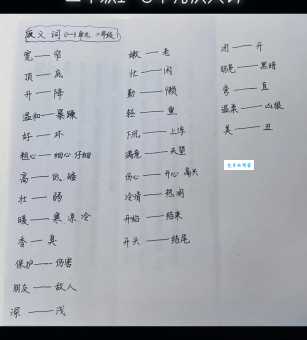 反义词(1-8单元 二年级)
宽——窄
顶——底
升——降
温和——暴躁
好——坏
粗心——细心 仔细
高——低 矮
壮——弱
暖——寒 凉 冷
香——臭
保护——伤害
朋友——敌人
深——浅
嫩——老
忙——闲
勤——懒
轻——重
下沉——上浮
满意——失望
伤心——开心 高兴
冷清——热闹
开始——结束
开头——结尾
闭——开
明亮——黑暗
弯——直
温柔——凶狠
美——丑